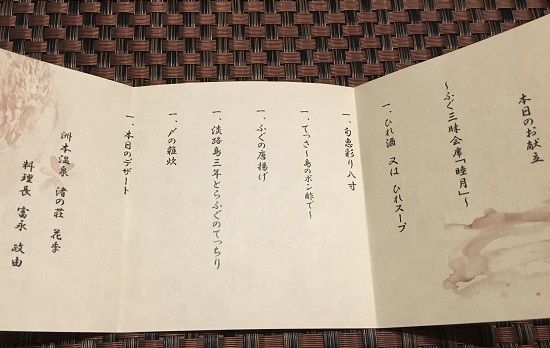 本日のお献立
～ふぐ三昧会席「睦月」～
一、ひれ酒 又は ひれスープ
一、旬恵彩り八寸
一、てっさ～島のポン酢で～
一、ふぐの唐揚げ
一、淡路島三年とらふぐのてっちり
一、〆の雑炊
一、本日のデザート
洲本温泉 渚の荘 花季
料理長 富永 政由